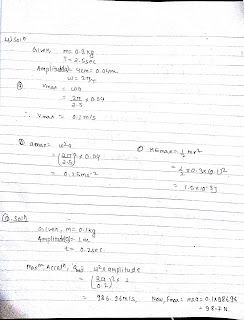 Given, m= 0.3kg
T= 2.5sec
Amplitude(a)= 4cm= 0.04m
Vmax = ωa
= 2π/2.5 × 0.04
∴ Vmax = 0.1m/s
amax= ω²a
= (2π/2.5)² × 0.04
= 0.25ms⁻²
KEmax= 1/2 mv²
= 1/2 × 0.3×(0.1)²
= 1.5×10⁻³J
Given, m= 0.1kg
Amplitude(a)= 1m
t= 0.2sec
ω² × amplitude
= (2π/0.2)² × 1
= 986.96m/s, Now, Fmax= ma= 0.1×986.96
= 98.7 N.